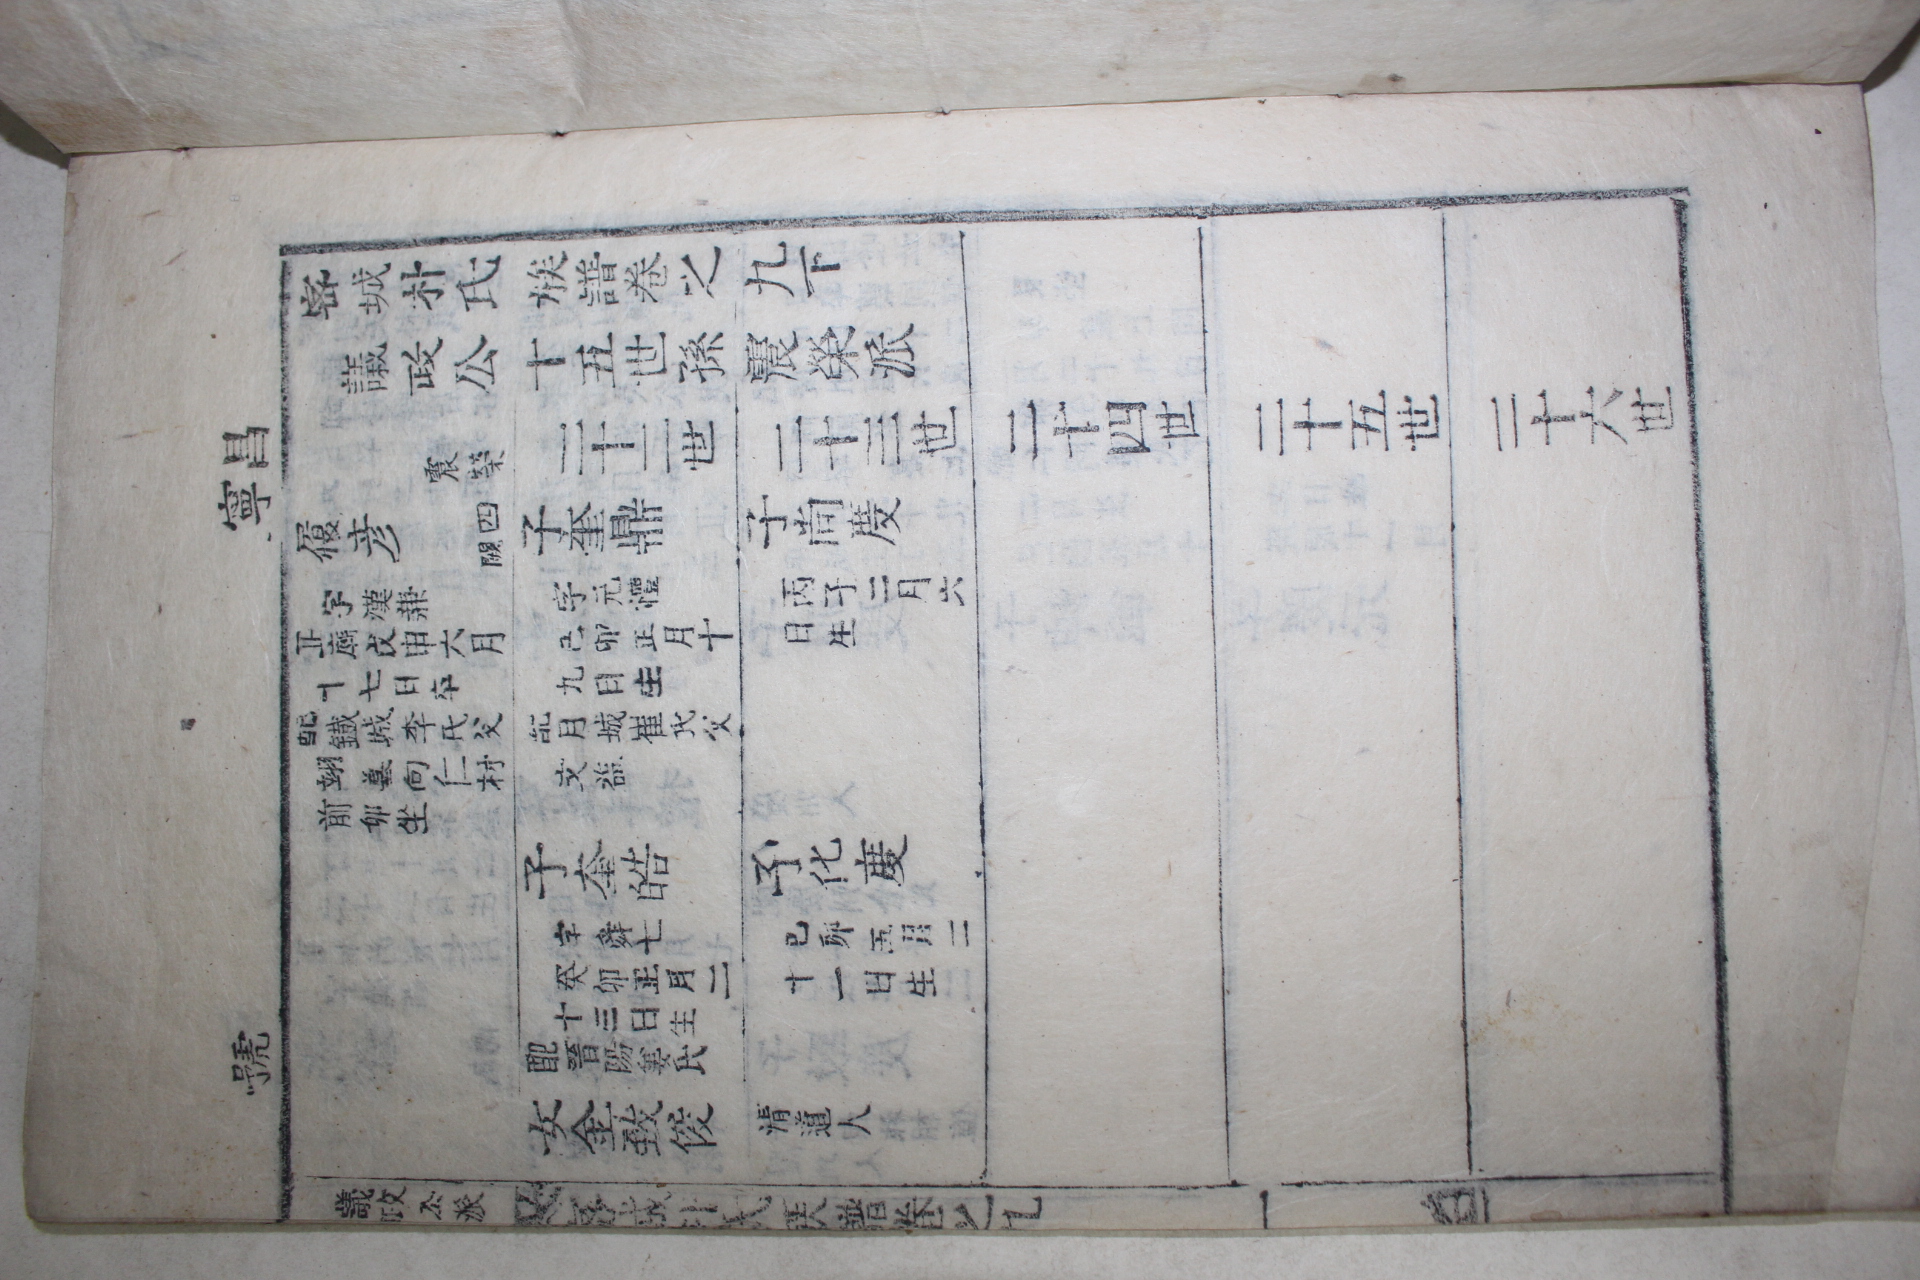 密城朴氏族譜卷之九下
議政公十五世孫震榮派
昌寧
震榮
二十二世
二十三世
二十四世
二十五世
二十六世
履彦
四
子奎鼎
子尙度
字漢兼
正廟戊申六月
十七日卒
配鐵城李氏父
翊墓向仁村
前卯坐
字元禮
己卯正月十
九日生
配月城崔氏父
文益
丙子二月六
日生
子奎皓
子化度
字舜七
癸卯正月二
十三日生
配晉陽姜氏
己卯五月二
十一日生
號
女金致俊
清道人
議政公派
密城朴氏族譜卷之九
一